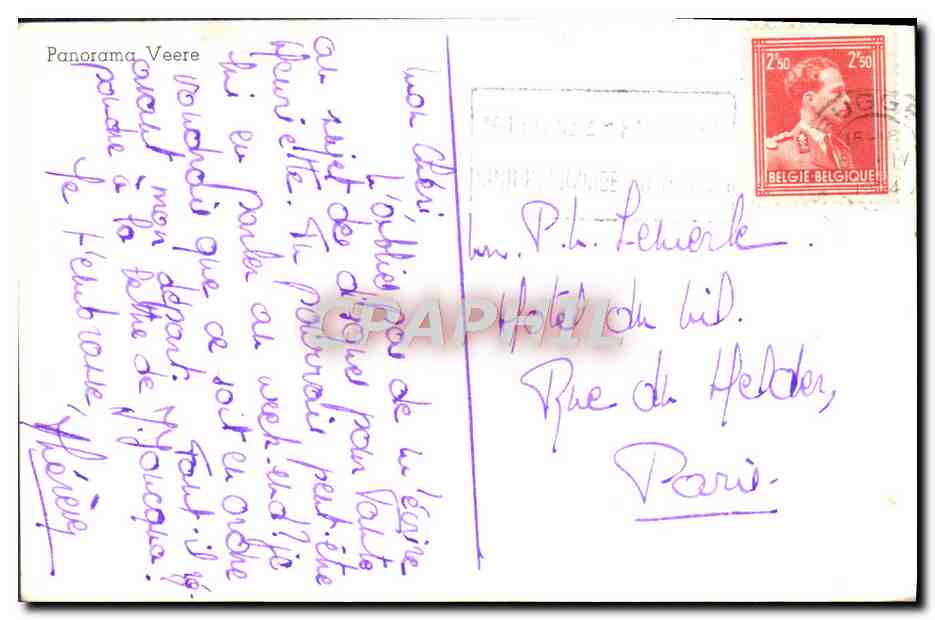 Panorama Veere
Mon Chéri,
N'oublie pas de m'écrire
au sujet des d'ours pour Tante
Henriette. Tu pourrais peut-être
lui en parler au week-end? Je
voudrais que ce soit en ordre
avant mon départ. Faut-il ré-
pondre à la lettre de
Je t'embrasse,
Thérèse
2'50 2'50
BELGIE-BELGIQUE
P.h. Lemerle
Hotel du
Rue du Helder,
Paris.
CPARHIL